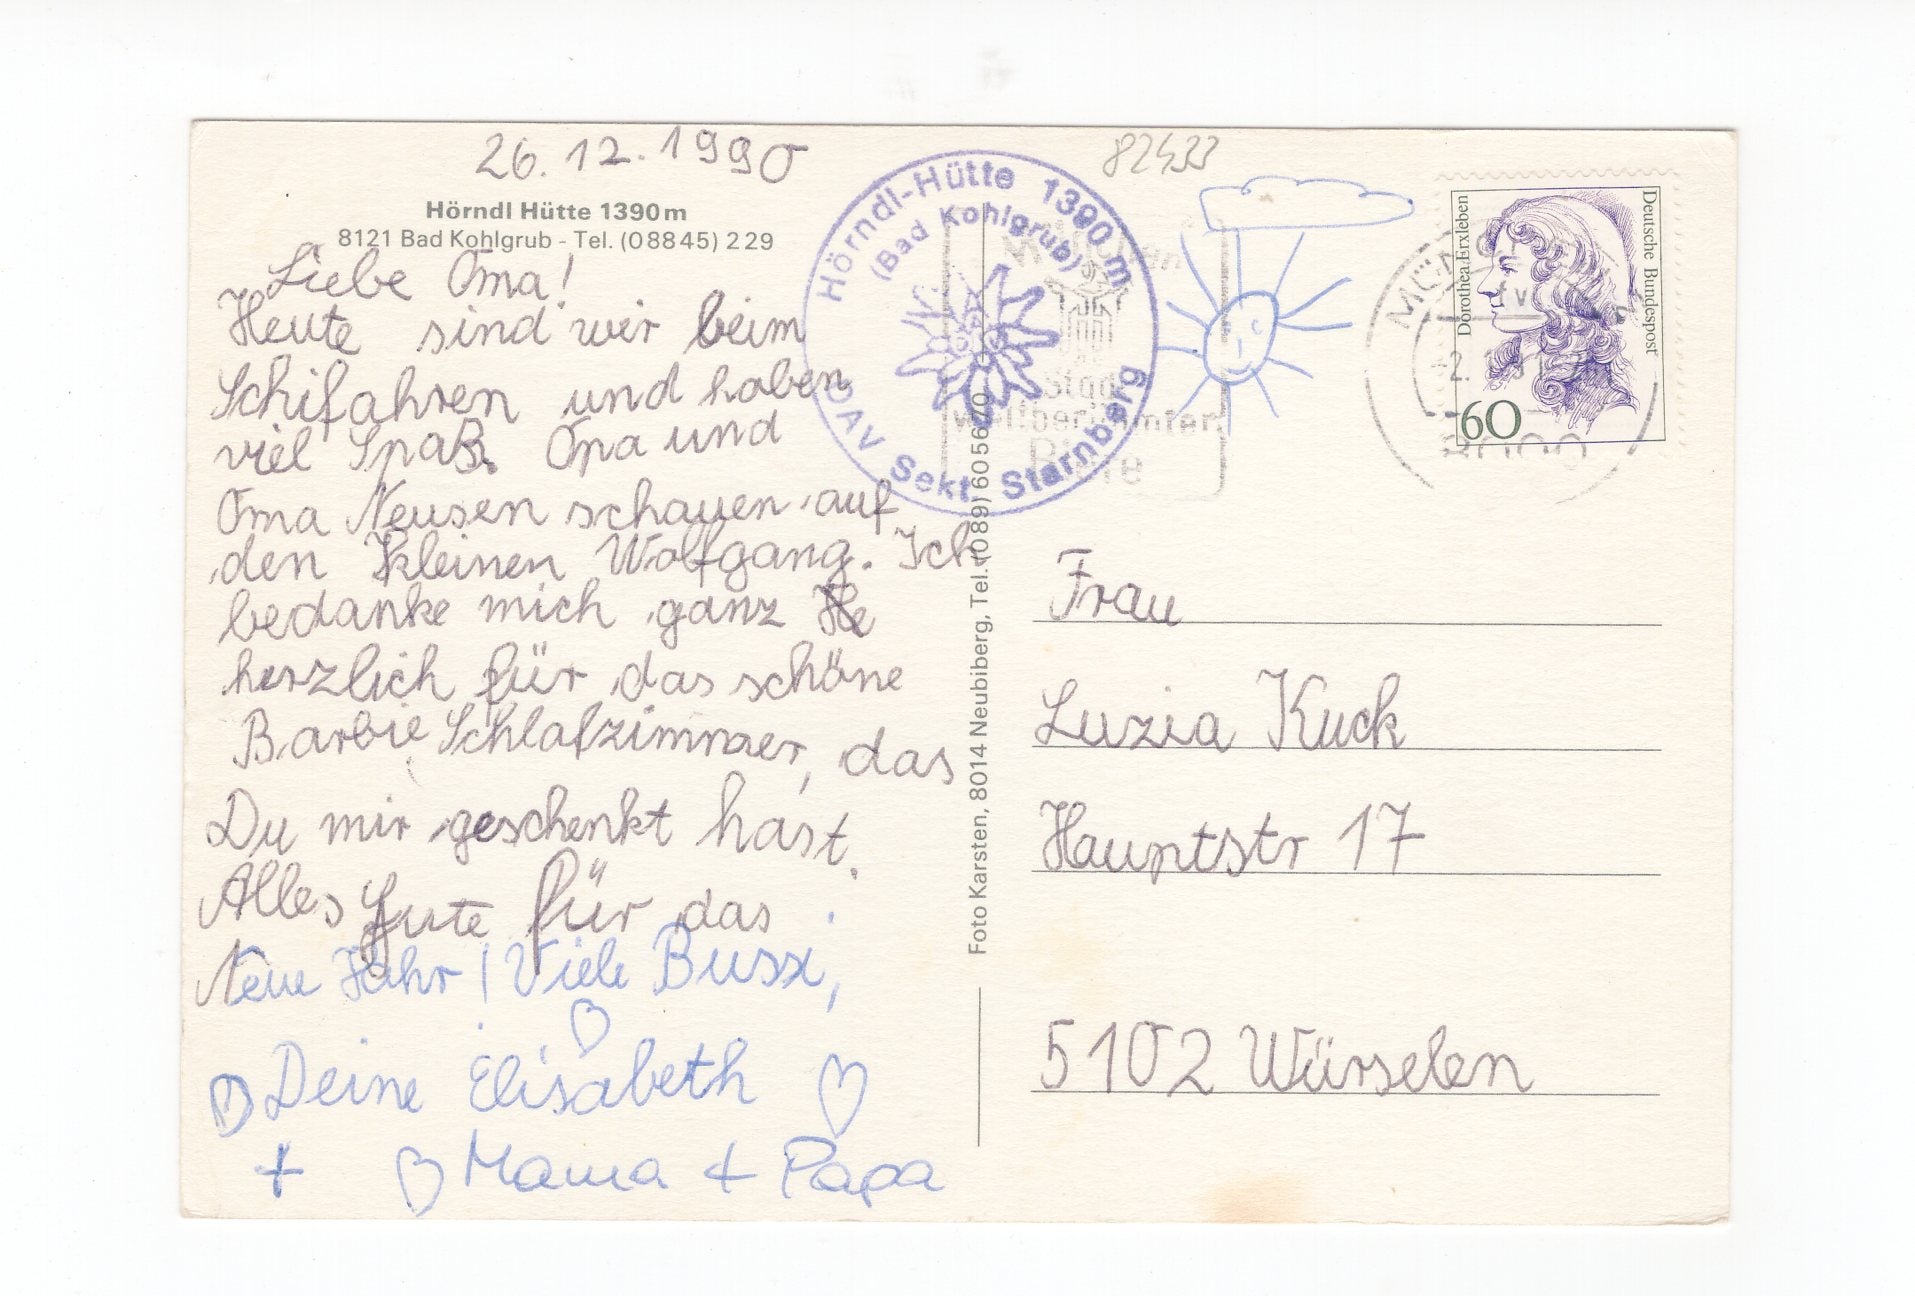 26.12.1990
Hörndl Hütte 1390m
8121 Bad Kohlgrub - Tel. (08845) 229
Liebe Oma!
Heute sind wir beim
Schifahren und haben
viel Spaß. Opa und
Oma Neusen schauen auf
den kleinen Wolfgang. Ich
bedanke mich ganz He
herzlich für das schöne
Barbie Schlafzimmer, das
Du mir geschenkt hast.
Alles gute für das
Neue Jahr! Viele Bussi,
Deine Elisabeth
+ Mama + Papa
Hörndl-Hütte 1390 m
(Bad Kohlgrub)
DAV Sekt. Starnberg
München
Stadt
weltberühmter
Biere
Foto Karsten, 8014 Neubiberg, Tel. (089) 605670
82433
Dorothea Erxleben
Deutsche Bundespost
60
8000
Frau
Luzia Kuck
Hauptstr 17
5102 Würselen